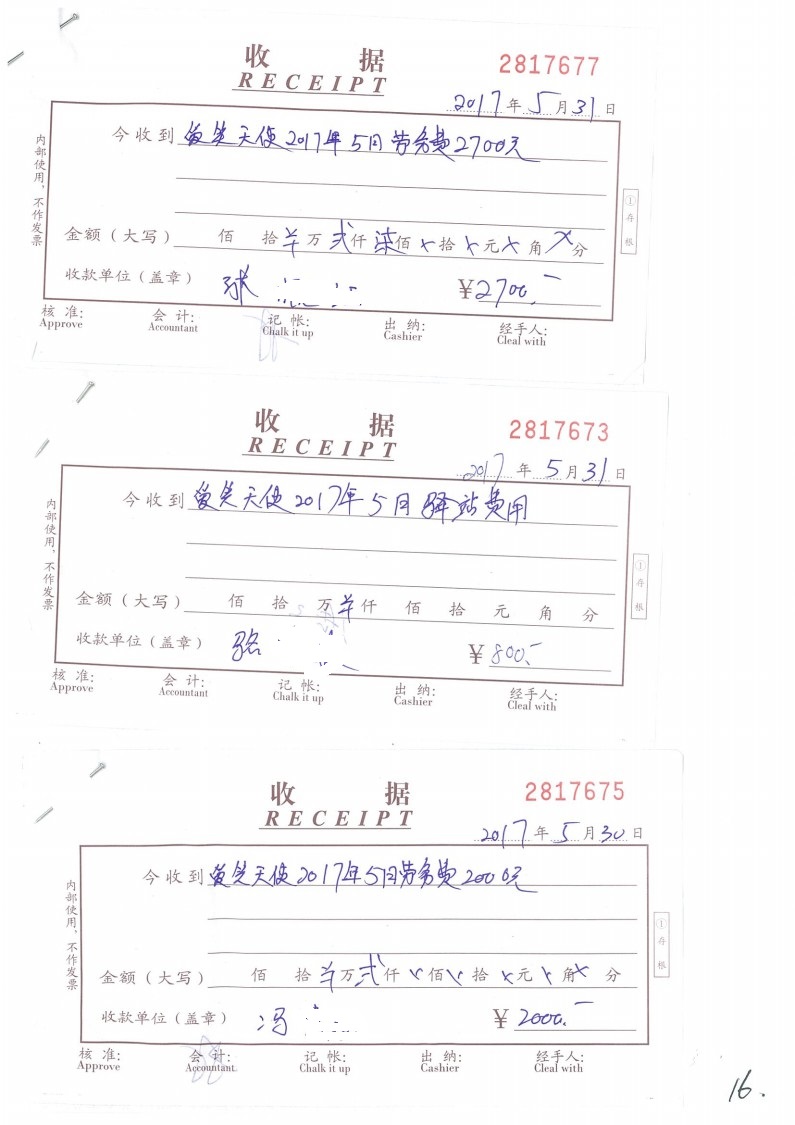 收 据
RECEIPT
2817677
2017年5月31日
今收到 爱笑天使2017年5月劳务费2700元
金额（大写） 佰 拾¥万贰仟柒佰×拾×元×角×分
收款单位（盖章） 张 ¥2700.—
核 准: 会 计: 记 帐: 出 纳: 经手人:
Approve Accountant Chalk it up Cashier Cleal with
内部使用，不作发票
①存根
收 据
RECEIPT
2817673
2017年5月31日
今收到 爱笑天使2017年5月驿站费用
金额（大写） 佰 拾 万¥仟 佰 拾 元 角 分
收款单位（盖章） 骆 ¥800.—
核 准: 会 计: 记 帐: 出 纳: 经手人:
Approve Accountant Chalk it up Cashier Cleal with
内部使用，不作发票
①存根
收 据
RECEIPT
2817675
2017年5月30日
今收到 爱笑天使2017年5月劳务费2000元
金额（大写） 佰 拾¥万贰仟×佰×拾×元×角×分
收款单位（盖章） 冯 ¥2000.—
核 准: 会 计: 记 帐: 出 纳: 经手人:
Approve Accountant Chalk it up Cashier Cleal with
内部使用，不作发票
①存根
16.